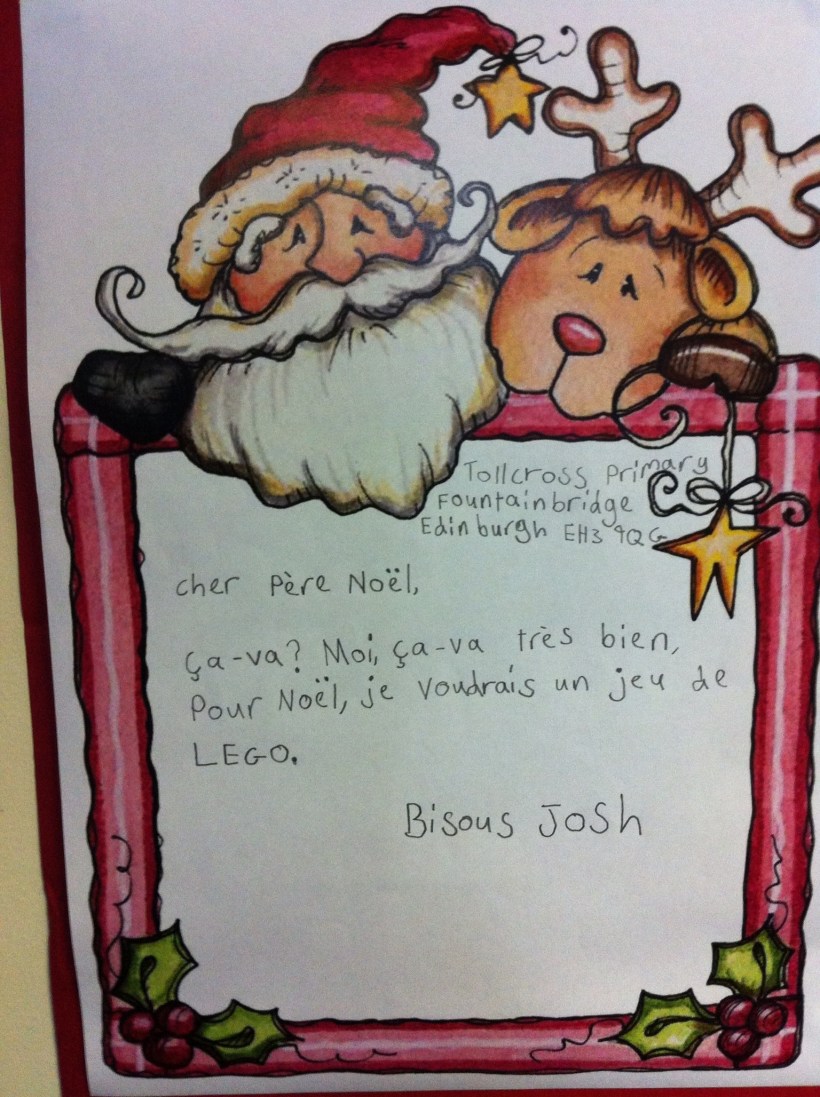 Tollcross Primary
Fountainbridge
Edinburgh EH3 9QG
cher Père Noël,
ça-va? Moi, ça-va très bien,
Pour Noël, je voudrais un jeu de
LEGO.
Bisous Josh